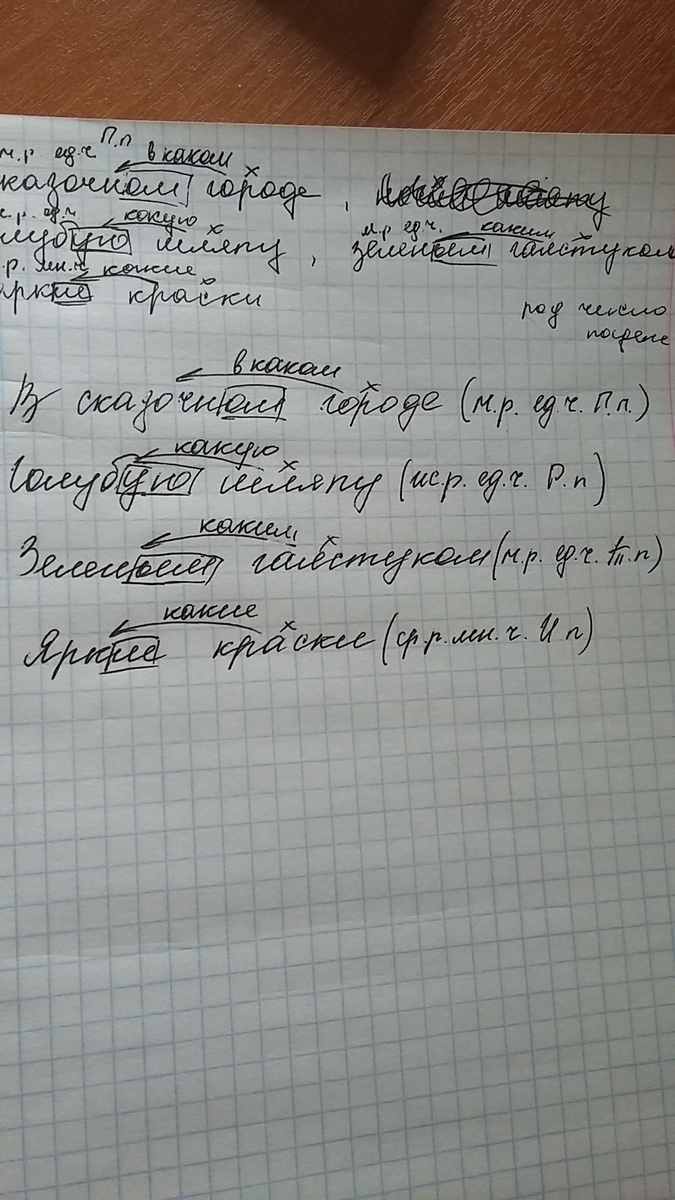 м.р ед.ч П.п в каком
казочном городе ,
ед.ч какую м.р ед.ч. каким
лубую шляпу , зеленым галстуком
.р. мн.ч какие
яркие краски
род число
падеж
в каком
В сказочном городе (м.р. ед.ч. П.п.)
какую
Голубую шляпу (ж.р. ед.ч. Р.п)
каким
Зеленым галстуком (м.р. ед.ч. п.п)
какие
Яркие краски (ср.р. мн.ч. И п)